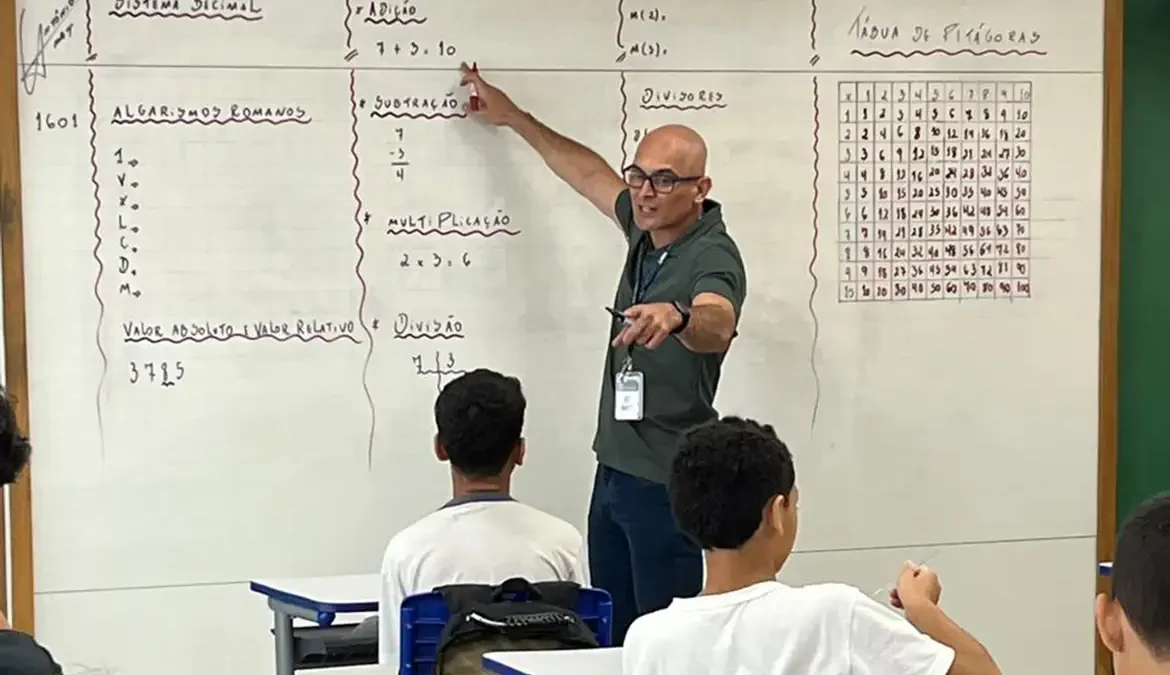 Antônio
MAT
1601
SISTEMA DECIMAL
ALGARISMOS ROMANOS
I→
V→
X→
L→
C→
D→
M→
VALOR ABSOLUTO E VALOR RELATIVO
3785
* ADIÇÃO
7 + 3 = 10
* SUBTRAÇÃO
7
-3
4
* MULTIPLICAÇÃO
2 x 3 = 6
* DIVISÃO
7 3
M(2)=
M(3)=
DIVISORES
TÁBUA DE PITÁGORAS
x 1 2 3 4 5 6 7 8 9 10
1 1 2 3 4 5 6 7 8 9 10
2 2 4 6 8 10 12 14 16 18 20
3 3 6 9 12 15 18 21 24 27 30
4 4 8 12 16 20 24 28 32 36 40
5 5 10 15 20 25 30 35 40 45 50
6 6 12 18 24 30 36 42 48 54 60
7 7 14 21 28 35 42 49 56 63 70
8 8 16 24 32 40 48 56 64 72 80
9 9 18 27 36 45 54 63 72 81 90
10 10 20 30 40 50 60 70 80 90 100